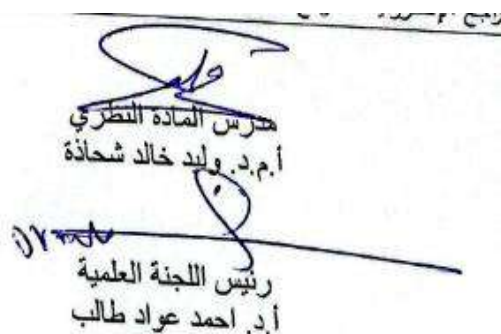 مدرس المادة النظري
أ.م.د. وليد خالد شحاذة
رئيس اللجنة العلمية
أ.د. احمد عواد طالب